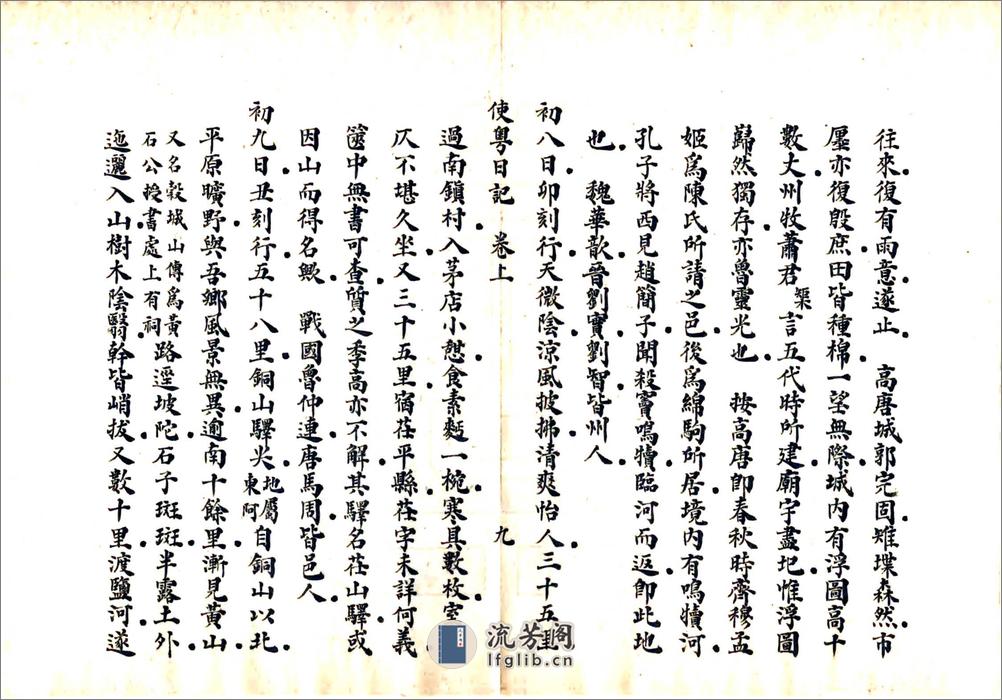 往來復有雨意遂止　高唐城郭完固雉堞森然市
廛亦復殷庶田皆種棉一望無際城內有浮圖高十
數丈州牧蕭君榘言五代時所建廟宇盡圮惟浮圖
巋然獨存亦魯靈光也　按高唐卽春秋時齊穆孟
姬爲陳氏所請之邑後爲綿駒所居境內有鳴犢河
孔子將西見趙簡子聞殺竇鳴犢臨河而返卽此地
也　魏華歆晉劉寔劉智皆州人
初八日卯刻行天微陰涼風披拂清爽怡人三十五里
使粵日記　卷上　九
過南鎮村入茅店小憩食素麪一椀寒具數枚室
仄不堪久坐又三十五里宿茌平縣茌字未詳何義
篋中無書可查質之季高亦不解其驛名茌山驛或
因山而得名歟　戰國魯仲連唐馬周皆邑人
初九日丑刻行五十八里銅山驛尖地屬東阿自銅山以北
平原曠野與吾鄉風景無異逾南十餘里漸見黃山
又名穀城山傳爲黃石公授書處上有祠路逕坡陀石子斑斑半露土外
迤邐入山樹木陰翳幹皆峭拔又數十里渡鹽河遂
流芳閣
lfglib.cn